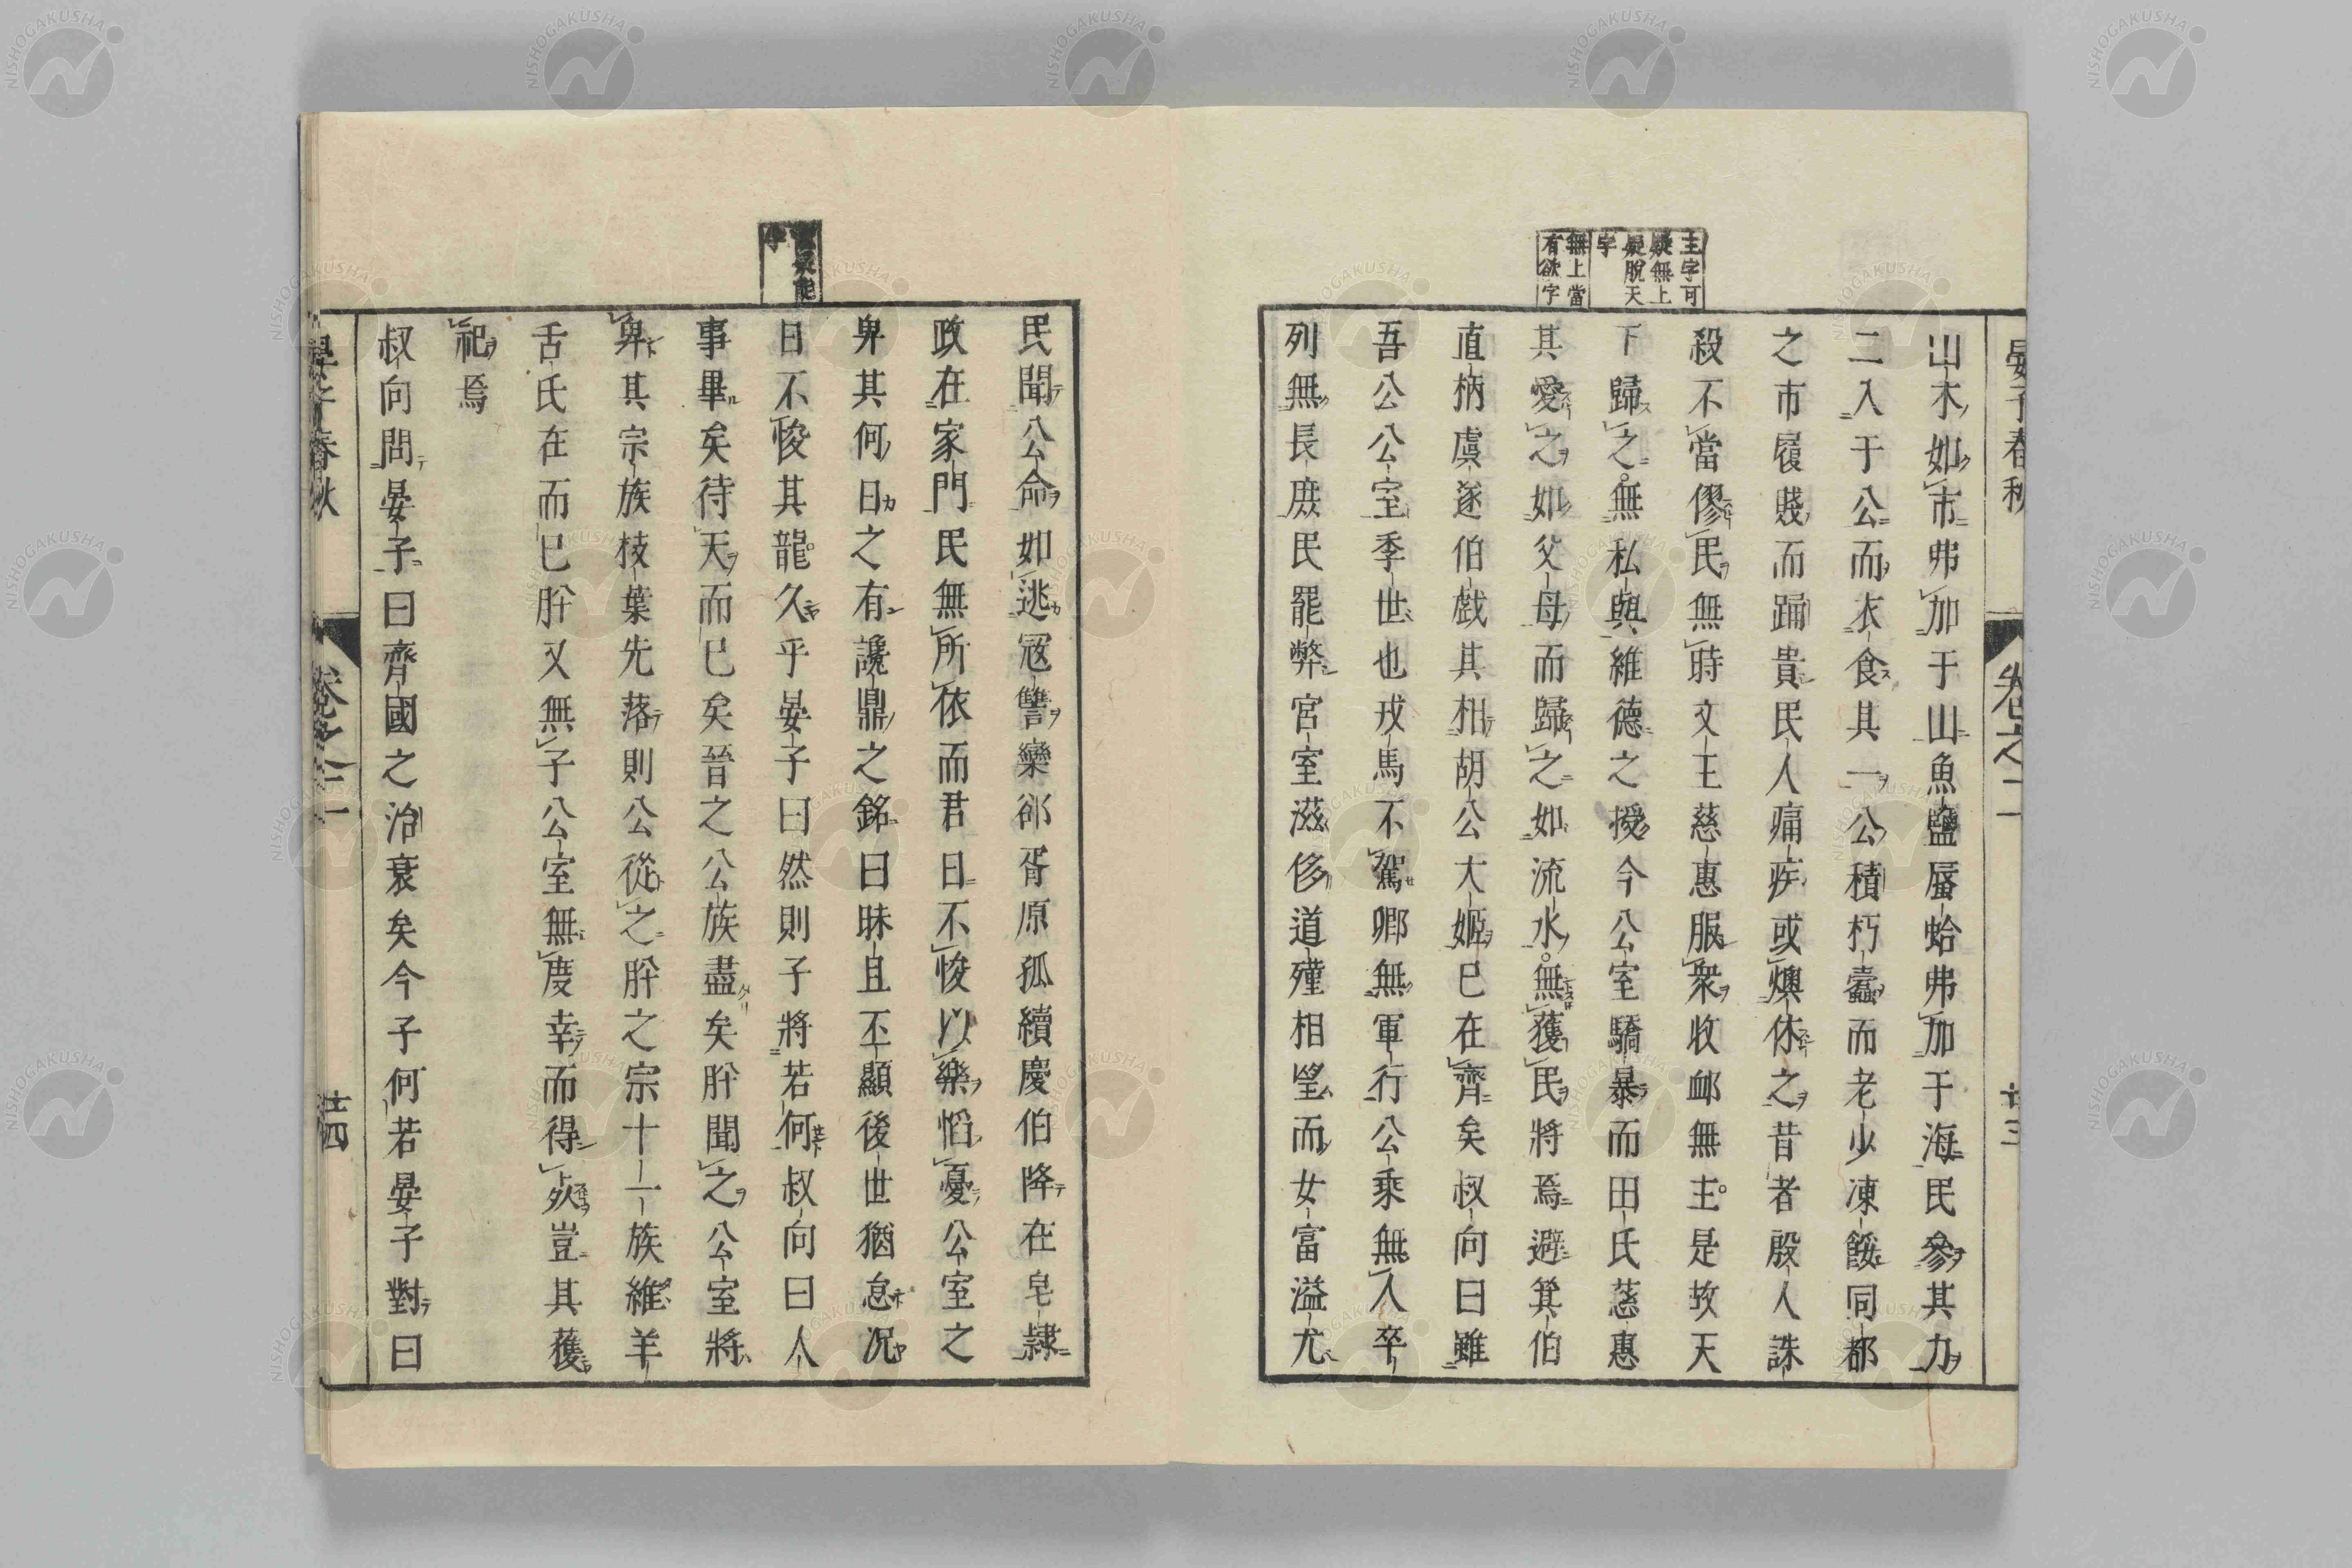 晏子春秋　卷之二　廿三
主字可
疑無上
疑脫天
字
無上當
有欲字
山木如市弗加于山魚鹽蜃蛤弗加于海民參其力
二入于公而衣食其一公積朽蠹而老少凍餒國都
之市屨賤而踊貴民人痛疾或燠休之昔者殷人誅
殺不當僇民無時文王慈惠服衆收卹無主是故天
下歸之無私與維德之授今公室驕暴而田氏慈惠
其愛之如父母而歸之如流水無獲民將焉避箕伯
直柄虞遂伯戲其相胡公大姬已在齊矣叔向曰雖
吾公公室季世也戎馬不駕卿無軍行公乘無人卒
列無長庶民罷弊宮室滋侈道殣相望而女富溢尤
民聞公命如逃寇讐欒郤胥原孤續慶伯降在皂隷
政在家門民無所依而君日不悛以樂慆憂公室之
卑其何日之有讒鼎之銘曰昧旦丕顯後世猶怠況
日不悛其龍久乎晏子曰然則子將若何叔向曰人
事畢矣待天而已矣晉之公族盡矣肸聞之公室將
卑其宗族枝葉先落則公從之肸之宗十一族維羊
舌氏在而已肸又無子公室無度幸而得死豈其獲
祀焉
叔向問晏子曰齊國之治衰矣今子何若晏子對曰
晏子春秋　卷之二　廿四